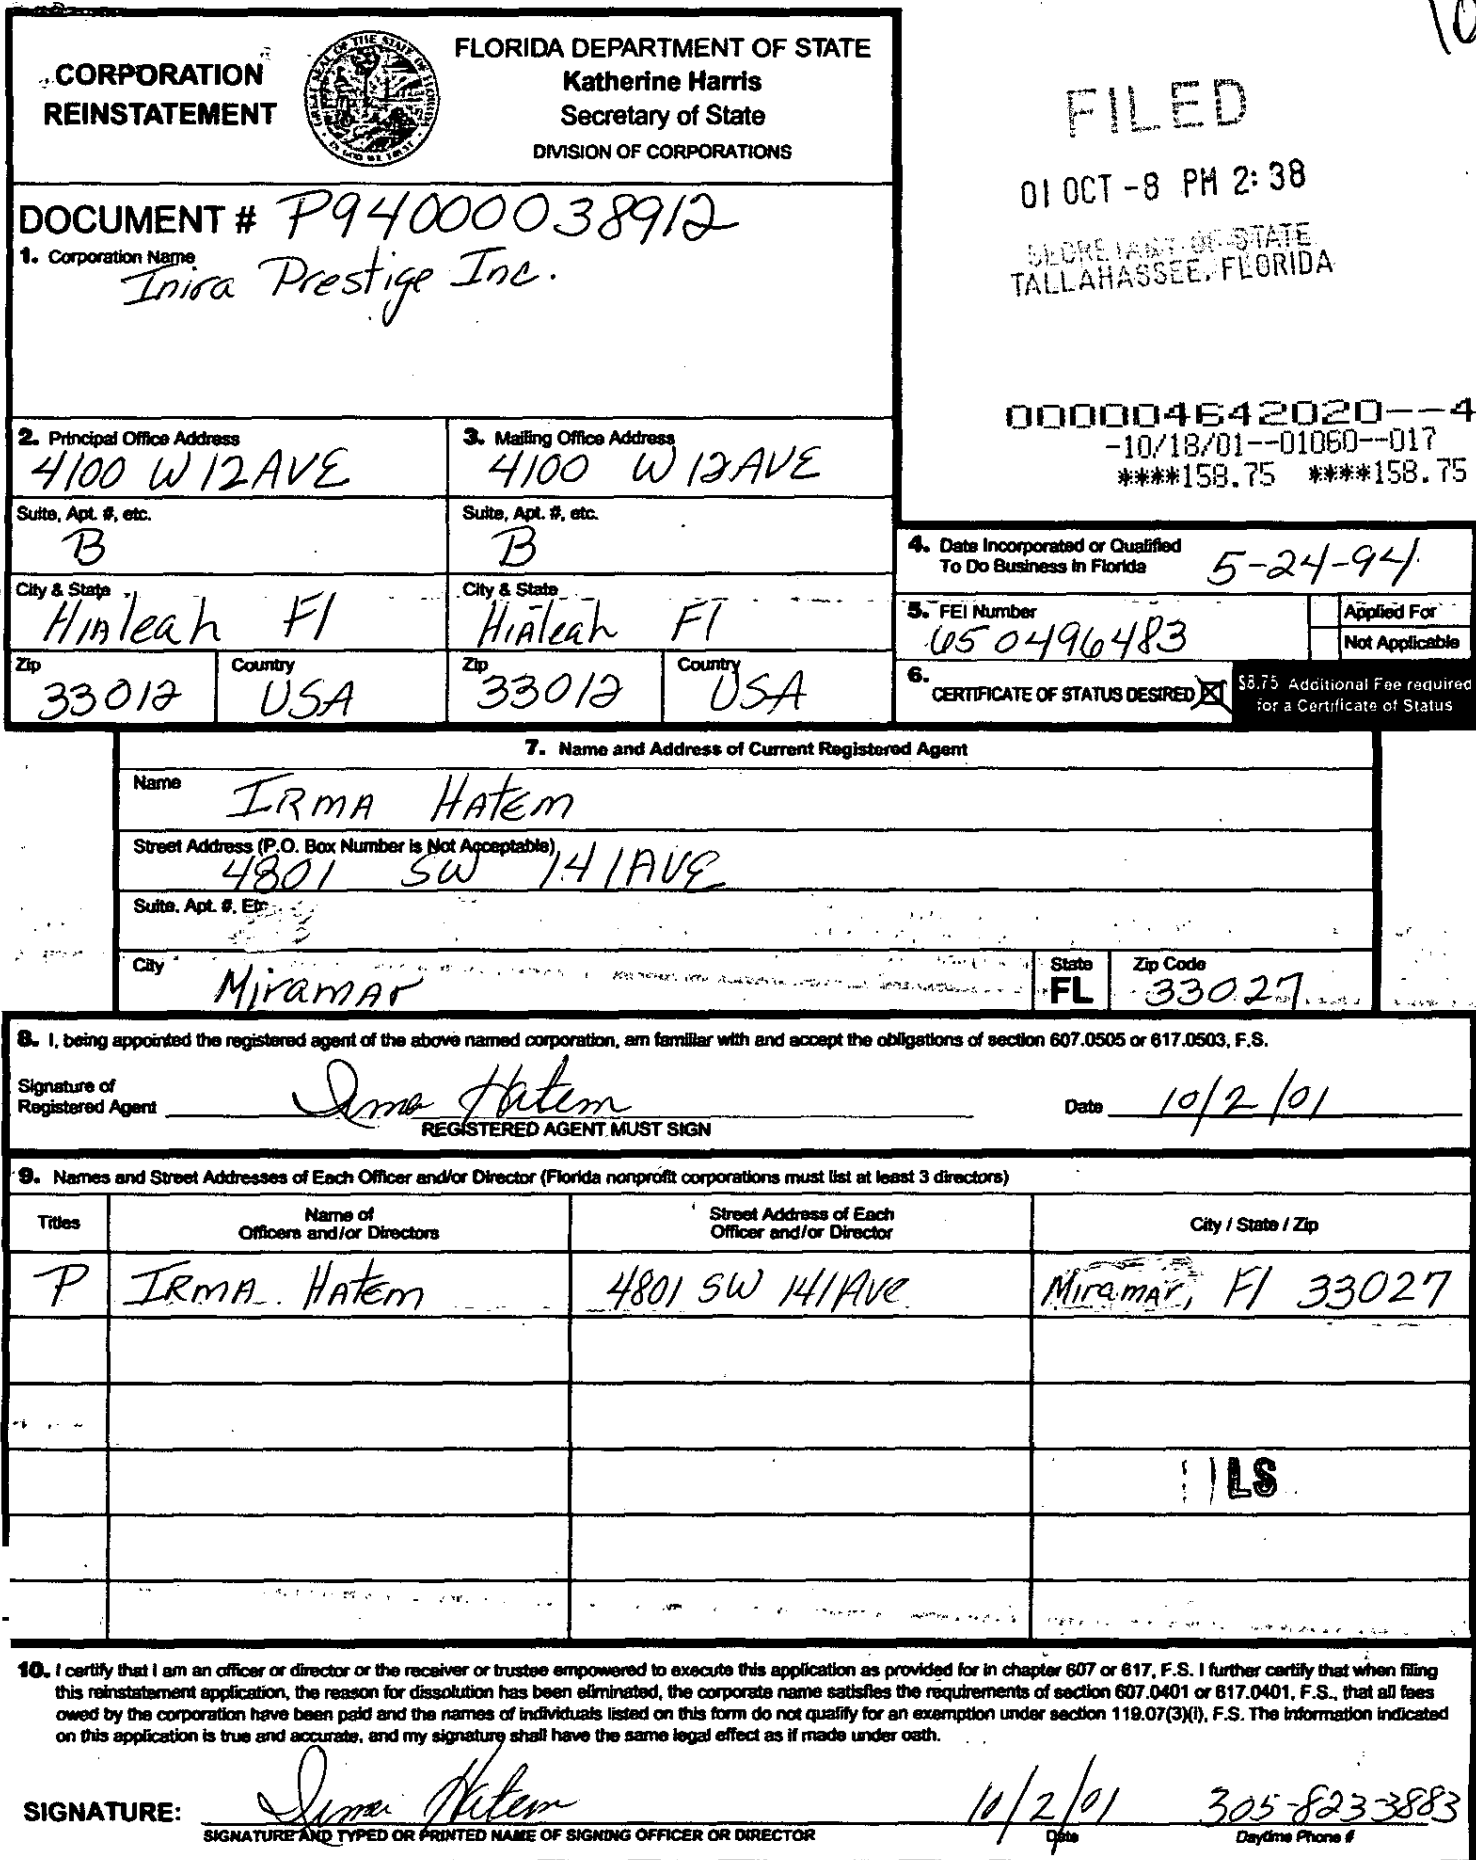 CORPORATION
REINSTATEMENT
FLORIDA DEPARTMENT OF STATE
Katherine Harris
Secretary of State
DIVISION OF CORPORATIONS
FILED
01 OCT -8 PM 2:38
SECRETARY OF STATE
TALLAHASSEE, FLORIDA
DOCUMENT # P94000038912
1. Corporation Name
Inira Prestige Inc.
000004642020--4
-10/18/01--01060--017
****158.75 ****158.75
2. Principal Office Address
4100 W 12AVE
3. Mailing Office Address
4100 W 12AVE
Suite, Apt. #, etc.
B
Suite, Apt. #, etc.
B
City & State
Hialeah Fl
City & State
Hialeah Fl
Zip
33012
Country
USA
Zip
33012
Country
USA
4. Date Incorporated or Qualified
To Do Business in Florida 5-24-94
5. FEI Number
650496483
Applied For
Not Applicable
6. CERTIFICATE OF STATUS DESIRED
$8.75 Additional Fee required
for a Certificate of Status
7. Name and Address of Current Registered Agent
Name IRMA HATEM
Street Address (P.O. Box Number is Not Acceptable)
4801 SW 141AVE
Suite, Apt. #, Etc.
City Miramar
State
FL
Zip Code
33027
8. I, being appointed the registered agent of the above named corporation, am familiar with and accept the obligations of section 607.0505 or 617.0503, F.S.
Signature of
Registered Agent Irma Hatem Date 10/2/01
REGISTERED AGENT MUST SIGN
9. Names and Street Addresses of Each Officer and/or Director (Florida nonprofit corporations must list at least 3 directors)
Titles
Name of
Officers and/or Directors
Street Address of Each
Officer and/or Director
City / State / Zip
P IRMA HATEM 4801 SW 141AVE Miramar, Fl 33027
LS
10. I certify that I am an officer or director or the receiver or trustee empowered to execute this application as provided for in chapter 607 or 617, F.S. I further certify that when filing
this reinstatement application, the reason for dissolution has been eliminated, the corporate name satisfies the requirements of section 607.0401 or 617.0401, F.S., that all fees
owed by the corporation have been paid and the names of individuals listed on this form do not qualify for an exemption under section 119.07(3)(i), F.S. The information indicated
on this application is true and accurate, and my signature shall have the same legal effect as if made under oath.
SIGNATURE: Irma Hatem 10/2/01 305-823-3883
SIGNATURE AND TYPED OR PRINTED NAME OF SIGNING OFFICER OR DIRECTOR Date Daytime Phone #